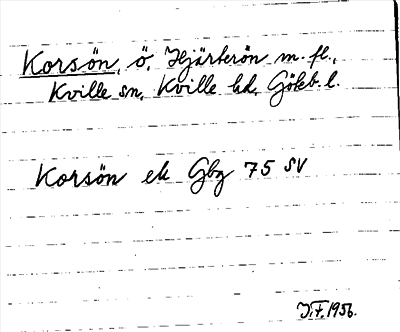 Korsön, ö, Hjärterön m. fl.,
Kville sn, Kville hd, Göteb. l.
Korsön ek Gbg 75 SV
J.F. 1956.